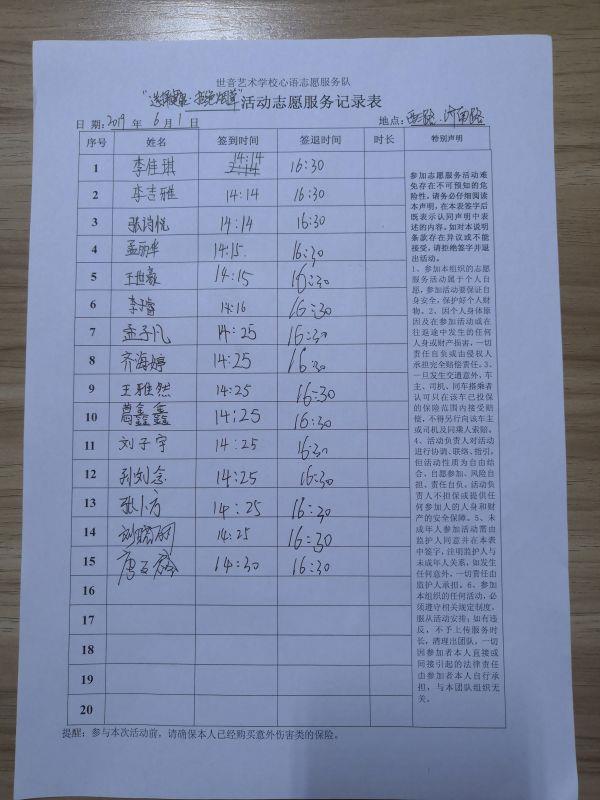 世音艺术学校心语志愿服务队
活动志愿服务记录表
日期：2019年6月1日 地点：
序号 姓名 签到时间 签退时间 时长 特别声明
1 李佳琪 14:14 16:30
2 李吉雅 14:14 16:30
3 张诗悦 14:14 16:30
4 孟丽华 14:15 16:30
5 王世豪 14:15 16:30
6 李睿 14:16 16:30
7 孟子凡 14:25 16:30
8 齐海婷 14:25 16:30
9 王雅然 14:25 16:30
10 鑫鑫 14:25 16:30
11 刘子宇 14:25 16:30
12 孙刘念 14:25 16:30
13 14:25 16:30
14 14:25 16:30
15 14:30 16:30
16
17
18
19
20
参加志愿服务活动难
免存在不可预知的危
险性，请务必仔细阅读
本声明，在本表签字后
既表示认同声明中表
述的内容。如对本说明
条款存在异议或不能
接受，请拒绝签字并退
出活动。
1、参加本组织的志愿
服务活动属于个人自
愿，参加活动要保证自
身安全，保护好个人财
物。2、因个人身体原
因及在参加活动或在
往返途中发生的任何
人身或财产损害，一切
责任自负或由侵权人
承担完全赔偿责任。3、
一旦发生交通意外，车
主、司机、同车搭乘者
认可只在该车已投保
的保险范围内接受赔
偿，不得另行向该车主
或司机及同乘人索赔。
4、活动负责人对活动
进行协调、联络、指引，
但活动性质为自由结
合、自愿参加、风险自
担、责任自负。活动负
责人不担保或提供任
何参加人的人身和财
产的安全保障。5、未
成年人参加活动需由
监护人同意并在本表
中签字，注明监护人与
未成年人关系，如发生
任何意外，一切责任由
监护人承担。6、参加
本组织的任何活动，必
须遵守相关规定制度，
服从活动安排；如有违
反，不予上传服务时
长，清理出团队。一切
因参加者本人直接或
间接引起的法律责任
由参加者本人自行承
担，与本团队组织无
关。
提醒：参与本次活动前，请确保本人已经购买意外伤害类的保险。